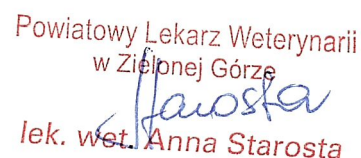 Powiatowy Lekarz Weterynarii
w Zielonej Górze
Starosta
lek. wet. Anna Starosta